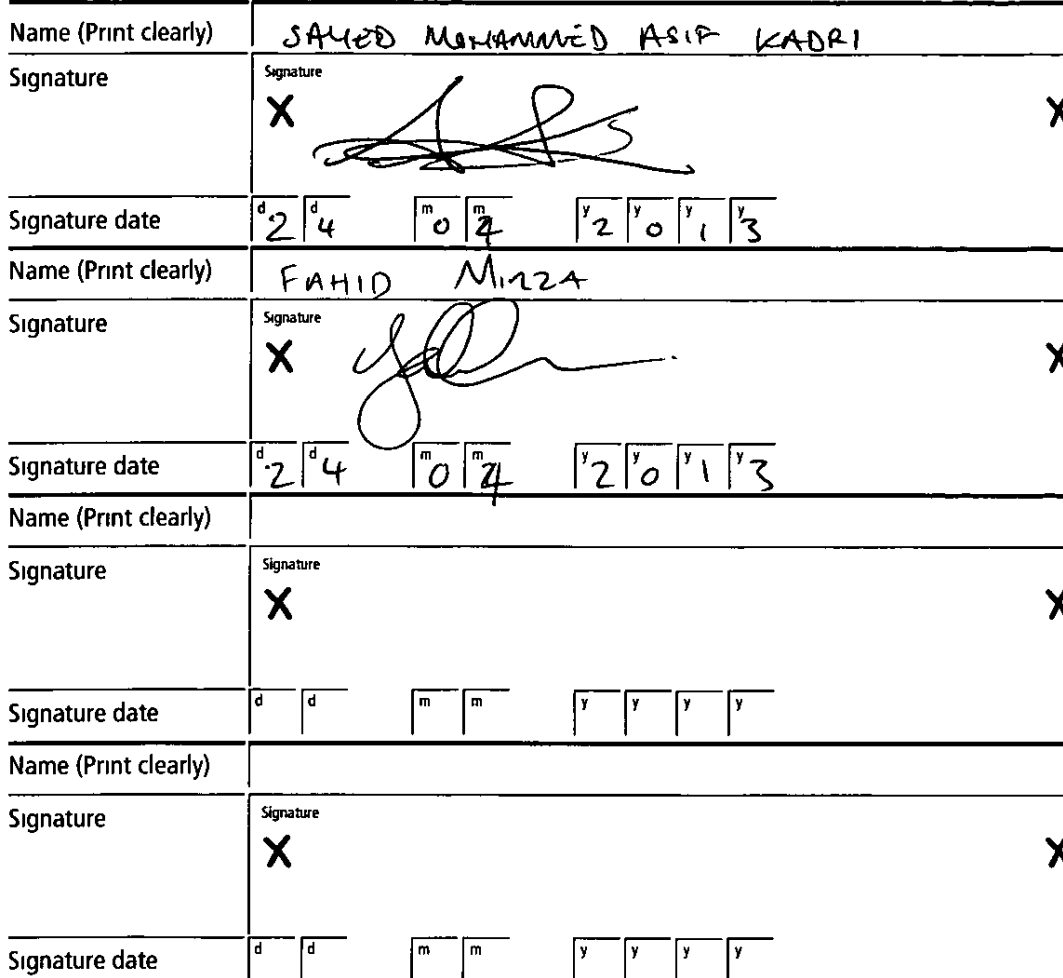 Name (Print clearly) SAYED MOHAMMED ASIF KADRI
Signature Signature
X X
Signature date d 2 d 4 m 0 m 4 y 2 y 0 y 1 y 3
Name (Print clearly) FAHID MIRZA
Signature Signature
X X
Signature date d 2 d 4 m 0 m 4 y 2 y 0 y 1 y 3
Name (Print clearly)
Signature Signature
X X
Signature date d d m m y y y y
Name (Print clearly)
Signature Signature
X X
Signature date d d m m y y y y